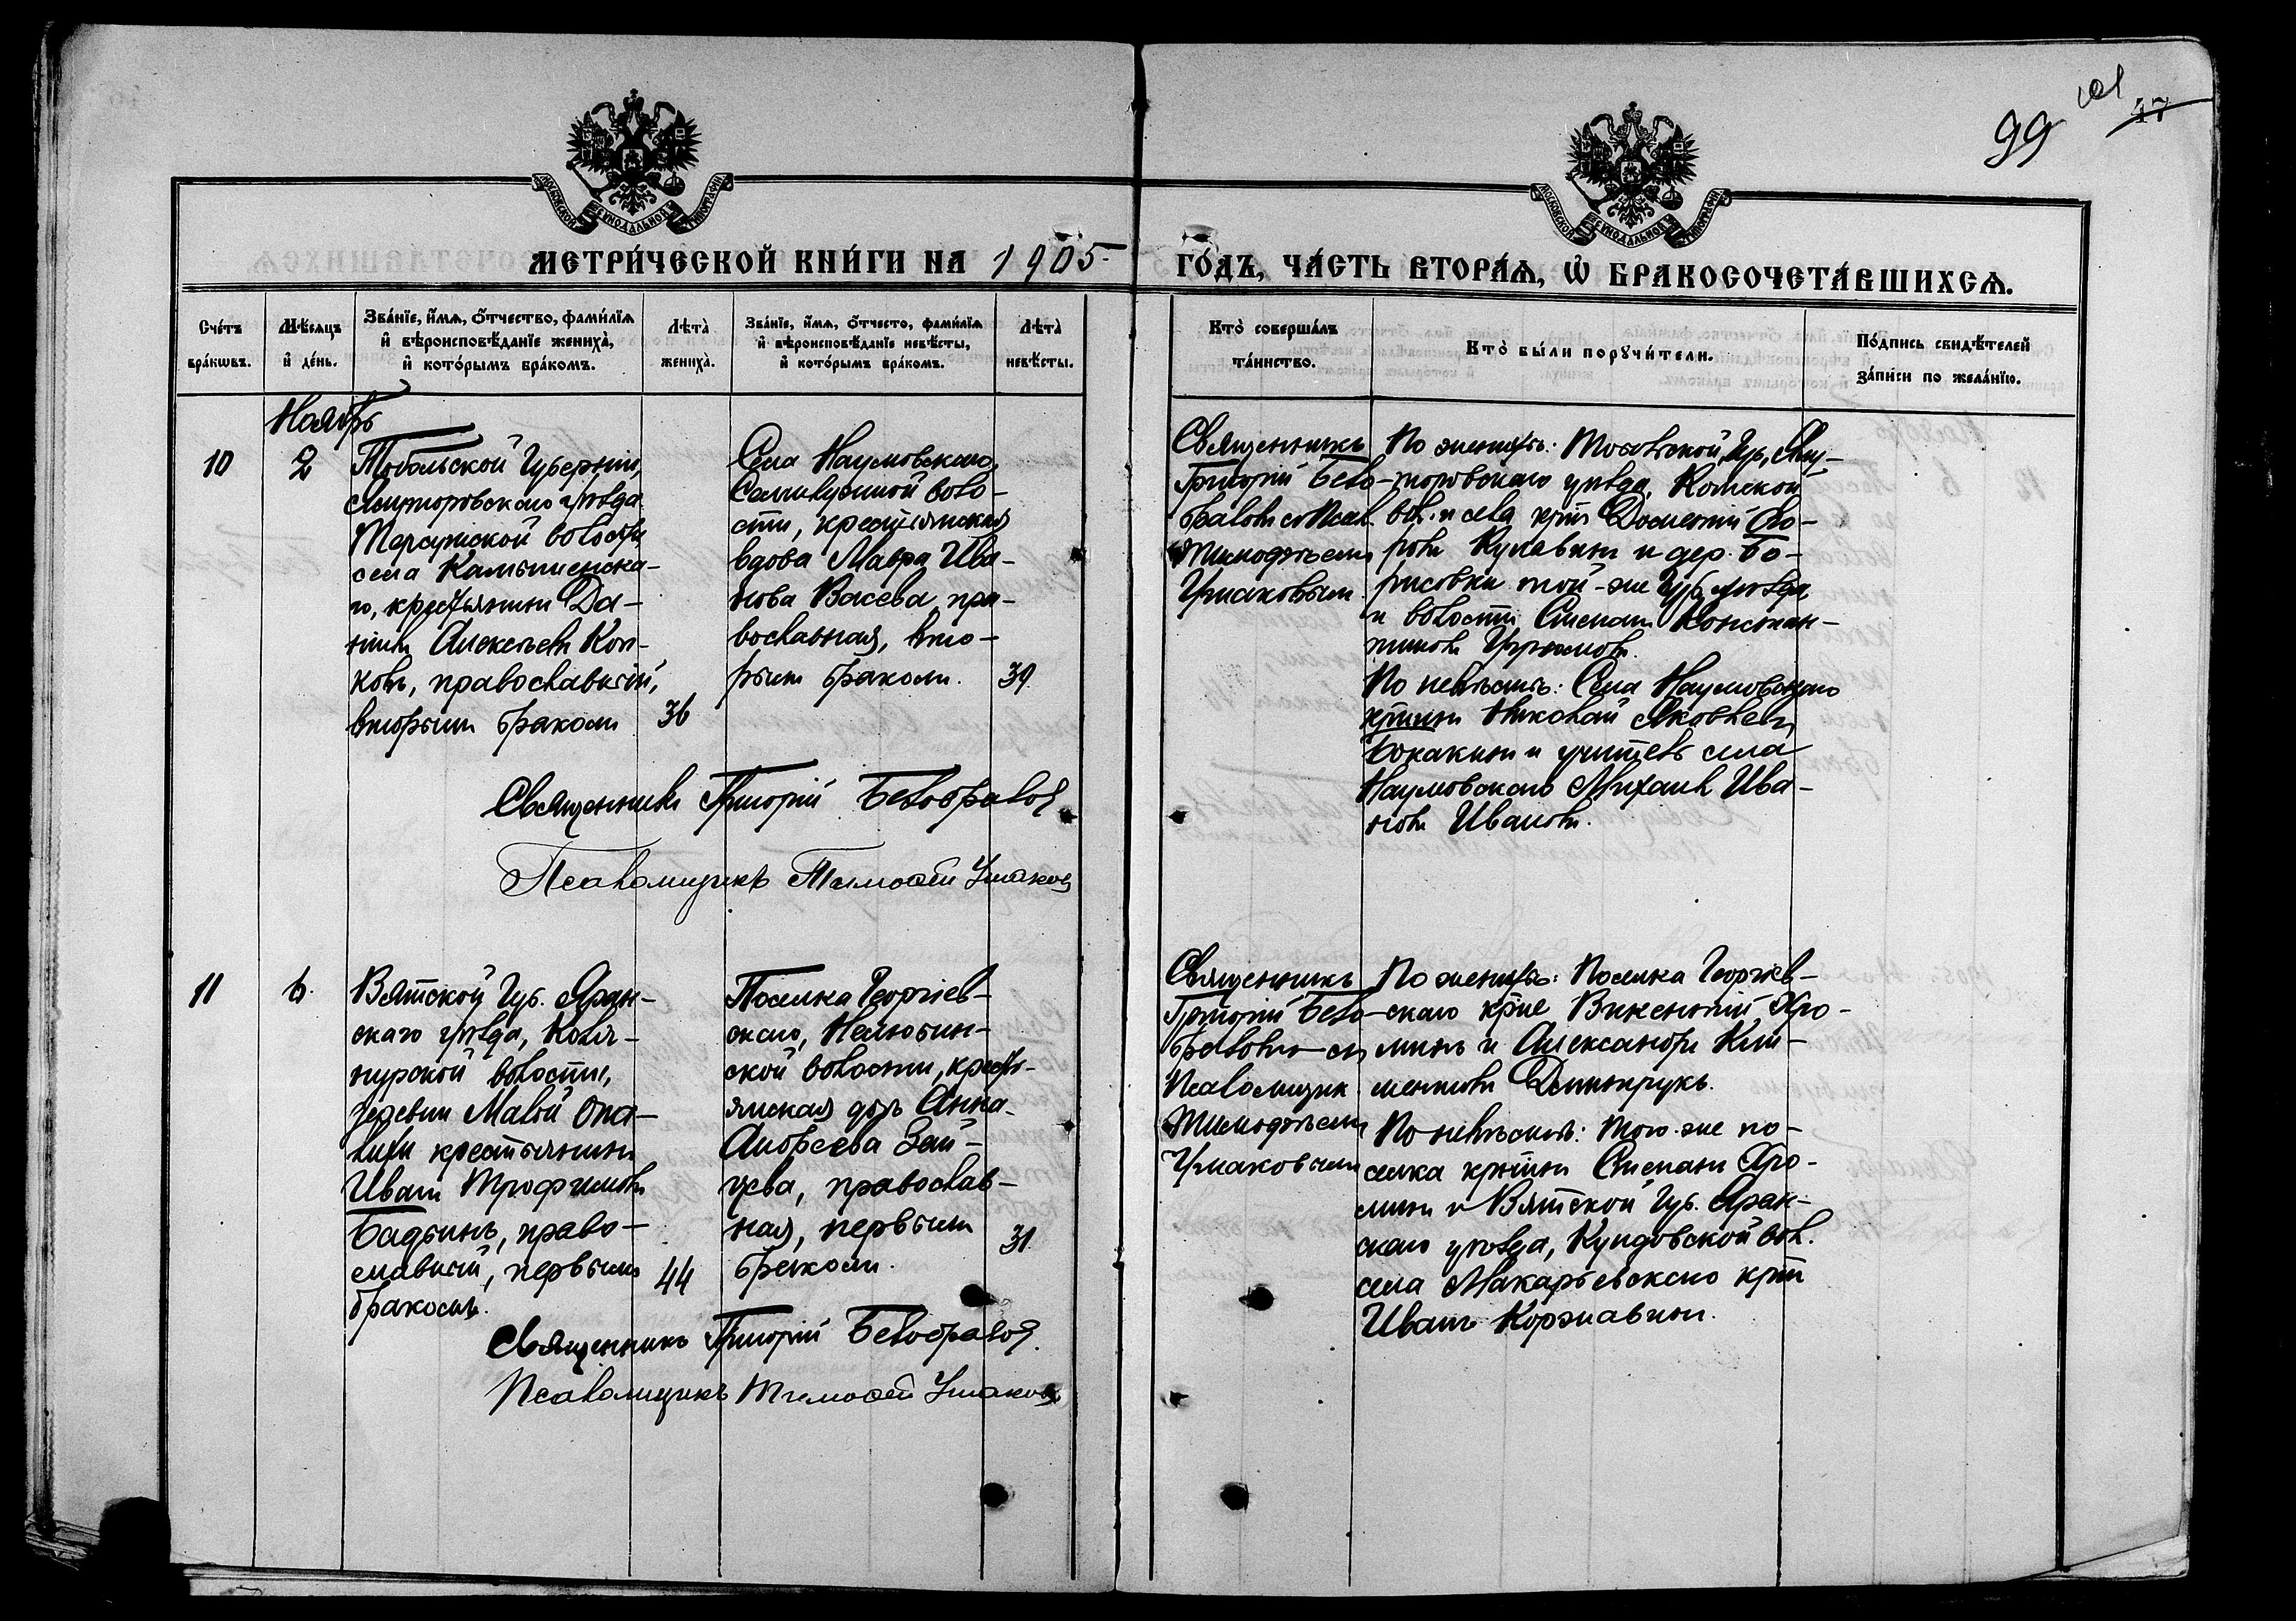 99
101
47
МОСКОВСКОЙ СѴНОДАЛЬНОЙ ТИПОГРАФІИ
МОСКОВСКОЙ СѴНОДАЛЬНОЙ ТИПОГРАФІИ
МЕТРИ́ЧЕСКОЙ КНИ́ГИ НА 1905
ГО́ДЪ, ЧА́СТЬ ВТОРА́Ѧ, Ѡ҆ БРАКОСОЧЕТА́ВШИХСѦ.
Сче́тъ
бра́кѡвъ.
Мѣ́сяцъ
и҆ де́нь.
Зва́нїе, и҆́мѧ, ѻ҆́тчество, фами́лїѧ
и҆ вѣроисповѣ́данїе жениха̀,
и҆ кото́рымъ бра́комъ.
Лѣта̀
жениха̀.
Зва́нїе, и҆́мѧ, ѻ҆́тчесто, фами́лїѧ
и҆ вѣроисповѣ́данїе невѣ́сты,
и҆ кото́рымъ бра́комъ.
Лѣта̀
невѣ́сты.
Кто̀ соверша́лъ
та́инство.
Кто̀ бы́ли порꙋчи́тели.
По́дпись свидѣ́телей
за́писи по жела́нїю.
Ноябрь
10
2
Тобольской Губерніи,
Ялуторовскаго уѣзда
Терсютской волости
села Камышенска-
го, крестьянинъ Да-
ніилъ Алексѣевъ Коп-
ковъ, православный,
вторымъ бракомъ
36
Села Наумовскаго,
воло-
сти, крестьянская
вдова Мавра Ива-
нова Васева, пра-
вославная, вто-
рымъ бракомъ.
39
Священникъ
Григорій Бело-
бравовъ съ Псал.
Тимофѣемъ
Ушаковымъ
По женихѣ: Тобольской Губ, Ялу-
торовскаго уѣзда, Комской
вол. и села крест. Досиѳей
Кунавинъ и дер. Бо-
рисовки той-же Губ, уѣзда
и волости, Степанъ Констан-
тиновъ
По невѣстѣ: Села Наумовскаго
крстнинъ Николай Яковлевъ
Бокакинъ и учитель села
Наумовскаго Михаилъ Ива-
новъ Ивановъ.
Священникъ Григорій
Псаломщикъ Тимоѳей Ушаковъ
11
6.
Вятской Губ. Яран-
скаго уѣзда, Коля-
нурской волости,
деревни Малой Опа-
лихи крестьянинъ
Иванъ Трофимовъ
Бадьинъ, право-
славный, первымъ
бракомъ.
44
Поселка Георгіев-
скаго, Нелюбин-
ской волости, кресть-
янская дочь Анна
Андреева Зай-
цева, православ-
ная, первымъ
бракомъ.
31
Священникъ
Григорій Бело-
бравовъ съ
Псаломщик.
Тимофѣемъ
Ушаковымъ
По женихѣ: Поселка Георгіев-
скаго крте Викентій Хро-
минъ и Александръ Кли-
ментовъ
По невѣстѣ: того-же по-
селка крстнинъ Степанъ Хро-
минъ и Вятской Губ. Яран-
скаго уѣзда, вол.
села Макарьевскаго крнъ
Иванъ Коржавинъ.
Священникъ Григорій
Псаломщикъ Тимоѳей Ушаковъ